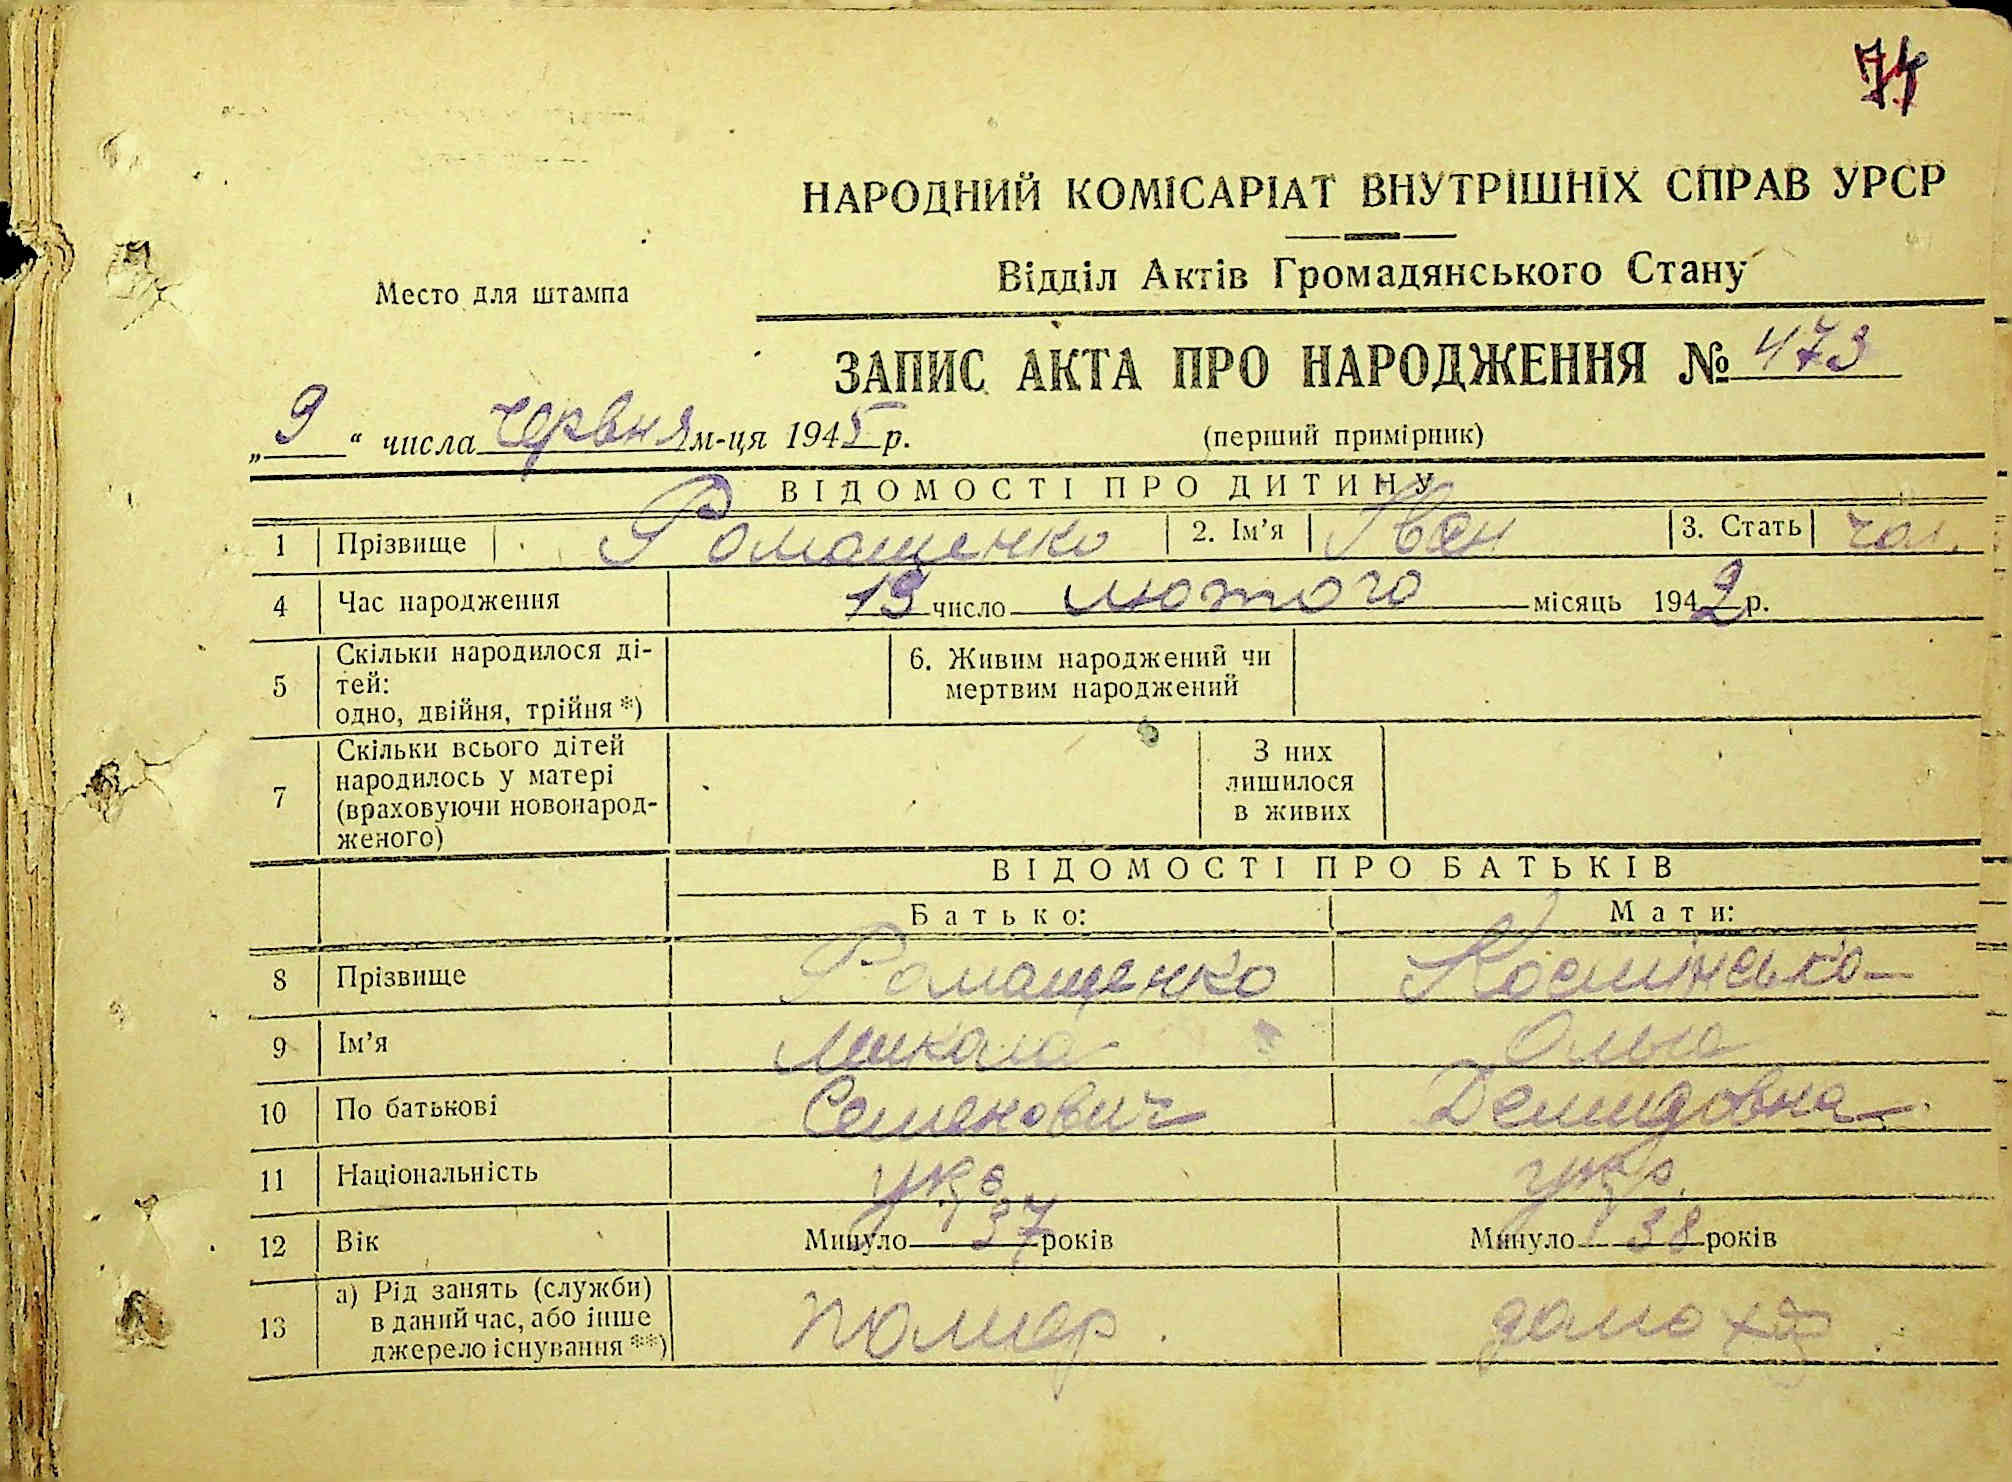 74
НАРОДНИЙ КОМІСАРІАТ ВНУТРІШНІХ СПРАВ УРСР
Відділ Актів Громадянського Стану
Место для штампа
ЗАПИС АКТА ПРО НАРОДЖЕННЯ № 473
„9“ числа червня м-ця 1945 р.
(перший примірник)
ВІДОМОСТІ ПРО ДИТИНУ
1 Прізвище Ромащенко 2. Ім'я Іван 3. Стать чол.
4 Час народження 19 число лютого місяць 1942 р.
5 Скільки народилося ді-
тей:
одно, двійня, трійня *)
6. Живим народжений чи
мертвим народжений
7 Скільки всього дітей
народилось у матері
(враховуючи новонарод-
женого)
З них
лишилося
в живих
ВІДОМОСТІ ПРО БАТЬКІВ
Батько: Мати:
8 Прізвище Ромащенко
9 Ім'я Микола Ольга
10 По батькові Семенович Демидовна
11 Національність укр укр.
12 Вік Минуло 37 років Минуло 38 років
13 а) Рід занять (служби)
в даний час, або інше
джерело існування **)
помер. домохоз